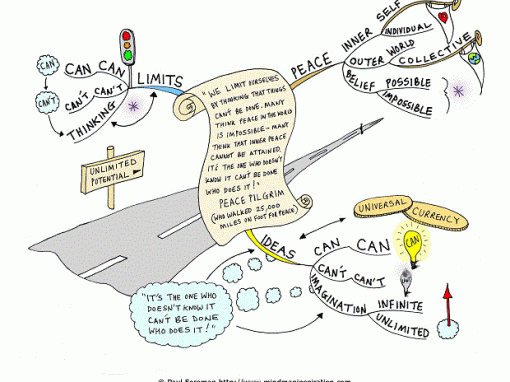 CAN
CAN'T
CAN CAN
CAN'T CAN'T
THINKING
LIMITS
UNLIMITED
POTENTIAL
"WE LIMIT OURSELVES
BY THINKING THAT THINGS
CAN'T BE DONE. MANY
THINK PEACE IN THE WORLD
IS IMPOSSIBLE - MANY
THINK THAT INNER PEACE
CANNOT BE ATTAINED.
IT'S THE ONE WHO DOESN'T
KNOW IT CAN'T BE DONE
WHO DOES IT!"
PEACE PILGRIM
(WHO WALKED 25,000
MILES ON FOOT FOR PEACE)
PEACE
INNER SELF
INDIVIDUAL
OUTER WORLD
COLLECTIVE
BELIEF POSSIBLE
IMPOSSIBLE
UNIVERSAL
CURRENCY
IDEAS
CAN CAN
CAN
CAN'T CAN'T
IMAGINATION INFINITE
UNLIMITED
"IT'S THE ONE WHO
DOESN'T KNOW IT
CAN'T BE DONE
WHO DOES IT!"
© Paul Foreman http://www.mindmapinspiration.com